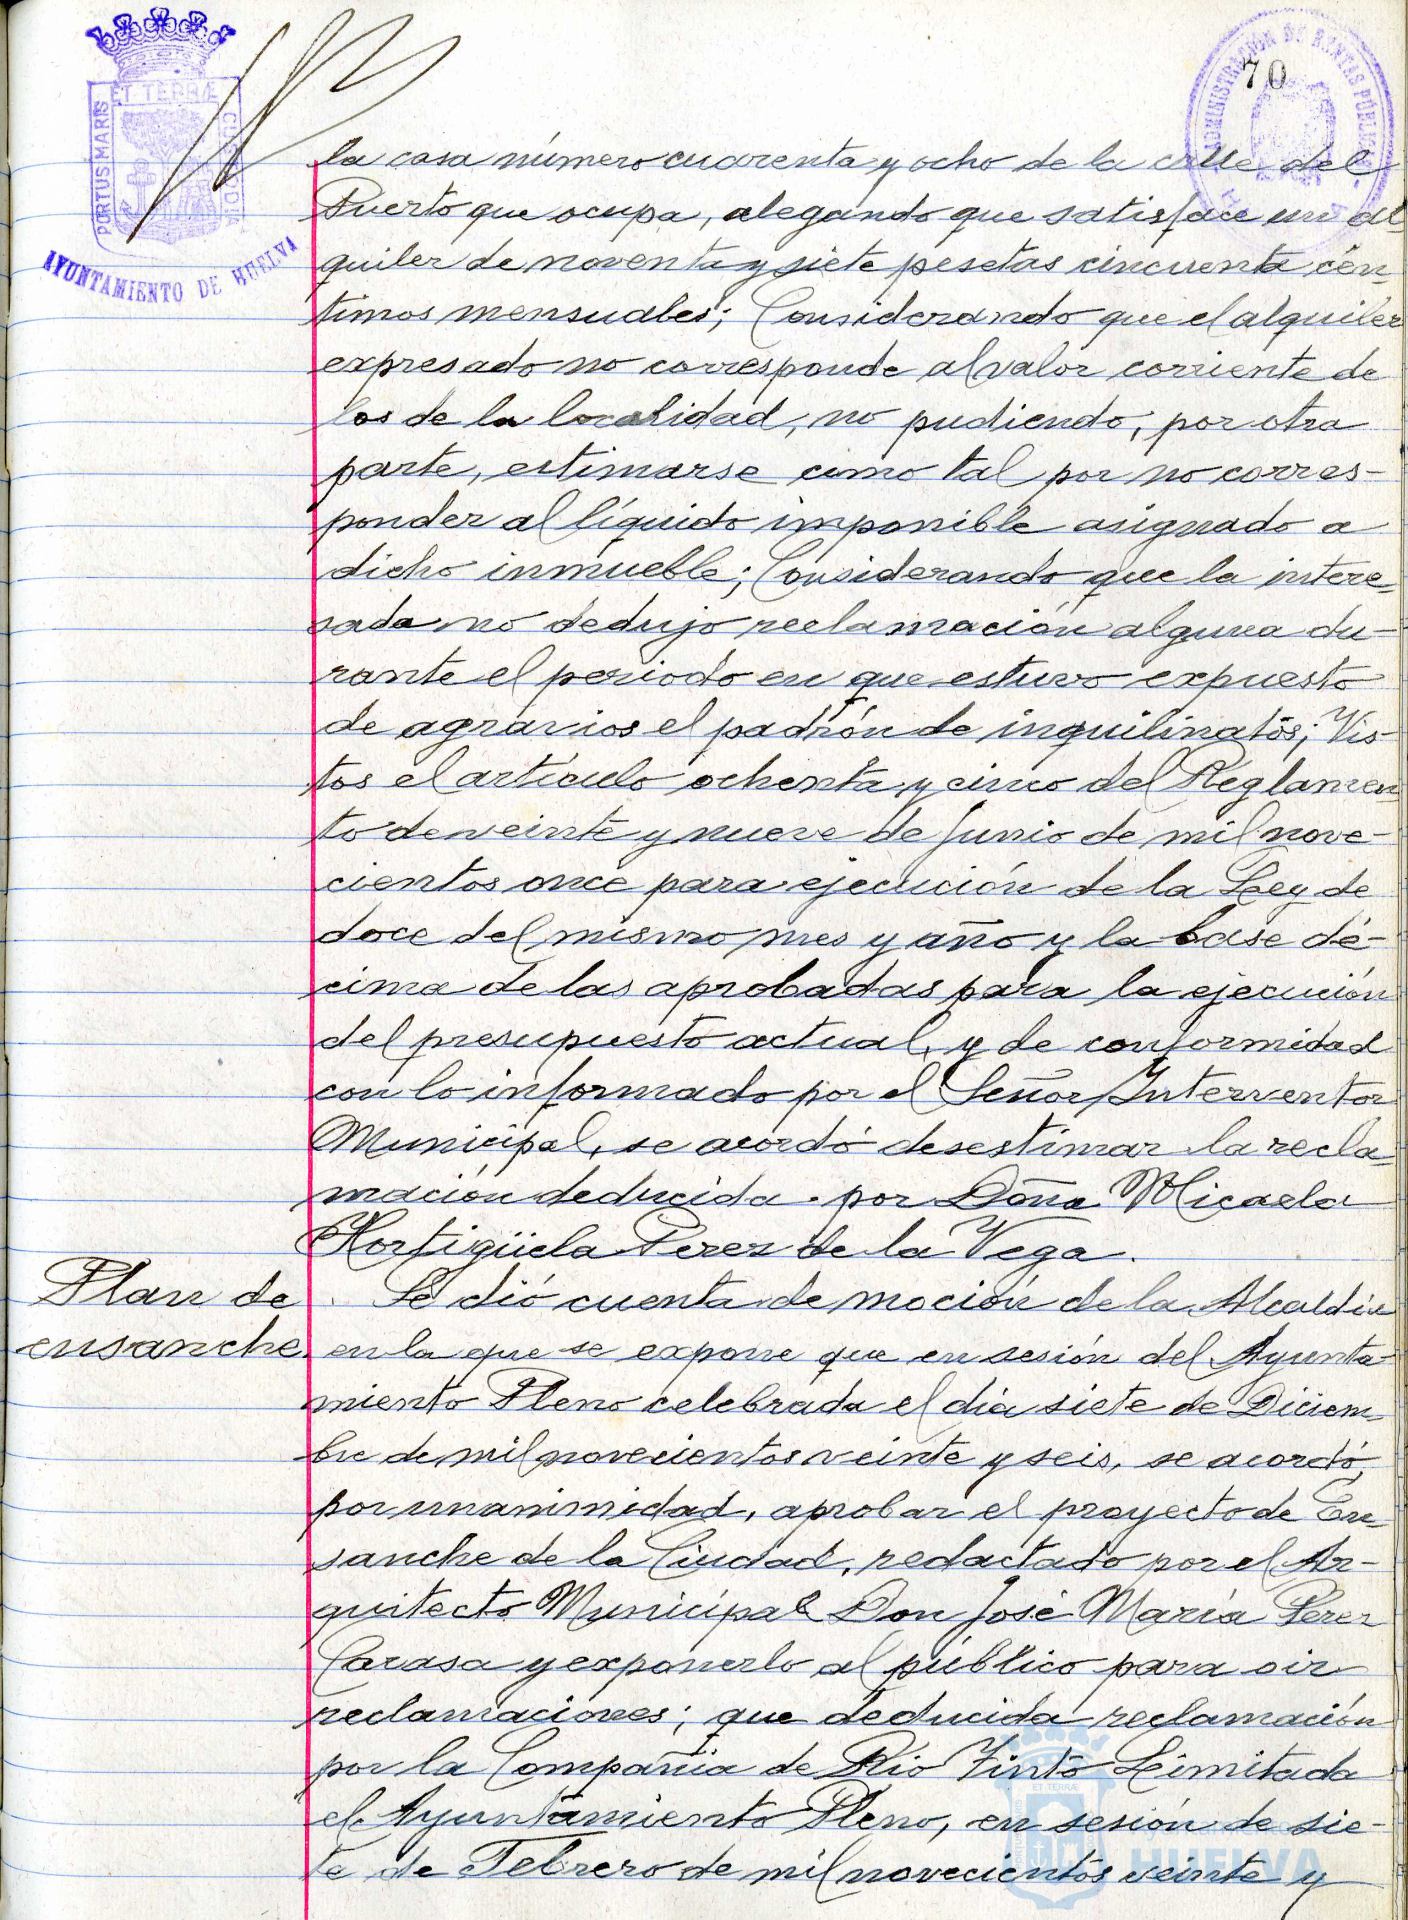 70
ET TERRÆ
PORTUS MARIS
CUSTODIA
AYUNTAMIENTO DE HUELVA
ADMINISTRACIÓN DE RENTAS PÚBLICAS
la casa número cuarenta y ocho de la calle del
Puerto que ocupa, alegando que satisface un al-
quiler de noventa y siete pesetas cincuenta cén-
timos mensuales; Considerando que el alquiler
expresado no corresponde al valor corriente de
los de la localidad, no pudiendo, por otra
parte, estimarse como tal por no corres-
ponder al líquido imponible asignado a
dicho inmueble; Considerando que la intere-
sada no dedujo reclamación alguna du-
rante el periodo en que estuvo expuesto
de agravios el padrón de inquilinatos; Vis-
tos el artículo ochenta y cinco del Reglamen
to de veinte y nueve de Junio de mil nove-
cientos once para ejecución de la Ley de
doce del mismo mes y año y la base dé-
cima de las aprobadas para la ejecución
del presupuesto actual, y de conformidad
con lo informado por el Señor Interventor
Municipal, se acordó desestimar la recla-
mación deducida por Doña Micaela
Hortigüela Perez de la Vega.
Plan de
ensanche.
Se dió cuenta de moción de la Alcaldía
en la que se expone que en sesión del Ayunta-
miento Pleno celebrada el día siete de Diciem-
bre de mil novecientos veinte y seis, se acordó,
por unanimidad, aprobar el proyecto de En-
sanche de la Ciudad, redactado por el Ar-
quitecto Municipal Don José María Perez
Carasa y exponerlo al público para oir
reclamaciones; que deducida reclamación
por la Compañia de Rio Tinto Limitada
el Ayuntamiento Pleno, en sesión de sie-
te de Febrero de mil novecientos veinte y
HUELVA